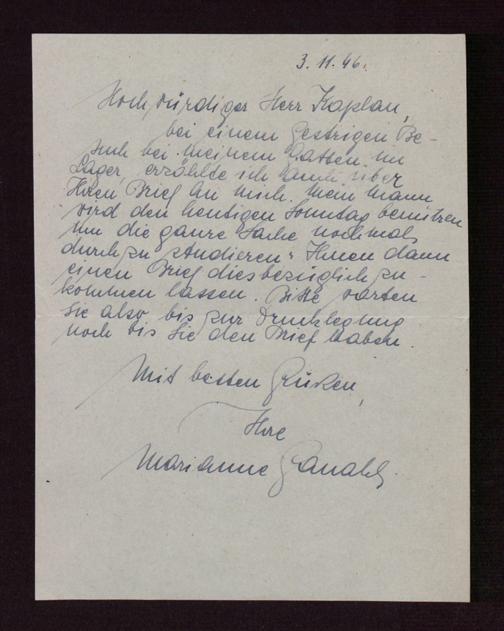 3. 11. 46.
Hochwürdiger Herr Kaplan,
bei einem gestrigen Be-
such bei meinem Gatten im
Lager, erzählte ich ihm über
Ihren Brief an mich. Mein Mann
wird den heutigen Sonntag benützen
um die ganze Sache nochmals
durchzustudieren u. Ihnen dann
einen Brief diesbezüglich zu-
kommen lassen. Bitte warten
Sie also bis zur Drucklegung
noch bis Sie den Brief haben.
Mit besten Grüßen,
Ihre
Marianne Ganahl.